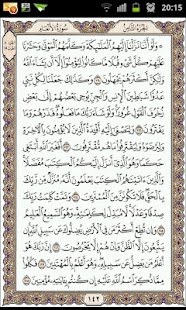 20:15
سورة الأنعام
الجزء الثامن
۞ وَلَوْ أَنَّنَا نَزَّلْنَا إِلَيْهِمُ الْمَلَٰئِكَةَ وَكَلَّمَهُمُ الْمَوْتَىٰ وَحَشَرْنَا
عَلَيْهِمْ كُلَّ شَيْءٍ قُبُلًا مَّا كَانُوا لِيُؤْمِنُوا إِلَّا أَن يَشَاءَ اللَّهُ
وَلَٰكِنَّ أَكْثَرَهُمْ يَجْهَلُونَ ١١١ وَكَذَٰلِكَ جَعَلْنَا لِكُلِّ نَبِيٍّ
عَدُوًّا شَيَٰطِينَ الْإِنسِ وَالْجِنِّ يُوحِي بَعْضُهُمْ إِلَىٰ بَعْضٍ
زُخْرُفَ الْقَوْلِ غُرُورًا وَلَوْ شَاءَ رَبُّكَ مَا فَعَلُوهُ فَذَرْهُمْ
وَمَا يَفْتَرُونَ ١١٢ وَلِتَصْغَىٰ إِلَيْهِ أَفْـِٔدَةُ الَّذِينَ لَا يُؤْمِنُونَ
بِالْآخِرَةِ وَلِيَرْضَوْهُ وَلِيَقْتَرِفُوا مَا هُم مُّقْتَرِفُونَ ١١٣
أَفَغَيْرَ اللَّهِ أَبْتَغِي حَكَمًا وَهُوَ الَّذِي أَنزَلَ إِلَيْكُمُ
الْكِتَٰبَ مُفَصَّلًا وَالَّذِينَ ءَاتَيْنَٰهُمُ الْكِتَٰبَ يَعْلَمُونَ أَنَّهُ مُنَزَّلٌ مِّن رَّبِّكَ
بِالْحَقِّ فَلَا تَكُونَنَّ مِنَ الْمُمْتَرِينَ ١١٤ وَتَمَّتْ كَلِمَتُ رَبِّكَ
صِدْقًا وَعَدْلًا لَّا مُبَدِّلَ لِكَلِمَٰتِهِ وَهُوَ السَّمِيعُ الْعَلِيمُ ١١٥
وَإِن تُطِعْ أَكْثَرَ مَن فِي الْأَرْضِ يُضِلُّوكَ عَن سَبِيلِ
اللَّهِ إِن يَتَّبِعُونَ إِلَّا الظَّنَّ وَإِنْ هُمْ إِلَّا يَخْرُصُونَ ١١٦ إِنَّ
رَبَّكَ هُوَ أَعْلَمُ مَن يَضِلُّ عَن سَبِيلِهِ وَهُوَ أَعْلَمُ بِالْمُهْتَدِينَ ١١٧
فَكُلُوا مِمَّا ذُكِرَ اسْمُ اللَّهِ عَلَيْهِ إِن كُنتُم بِـَٔايَٰتِهِ مُؤْمِنِينَ ١١٨
١٤٢